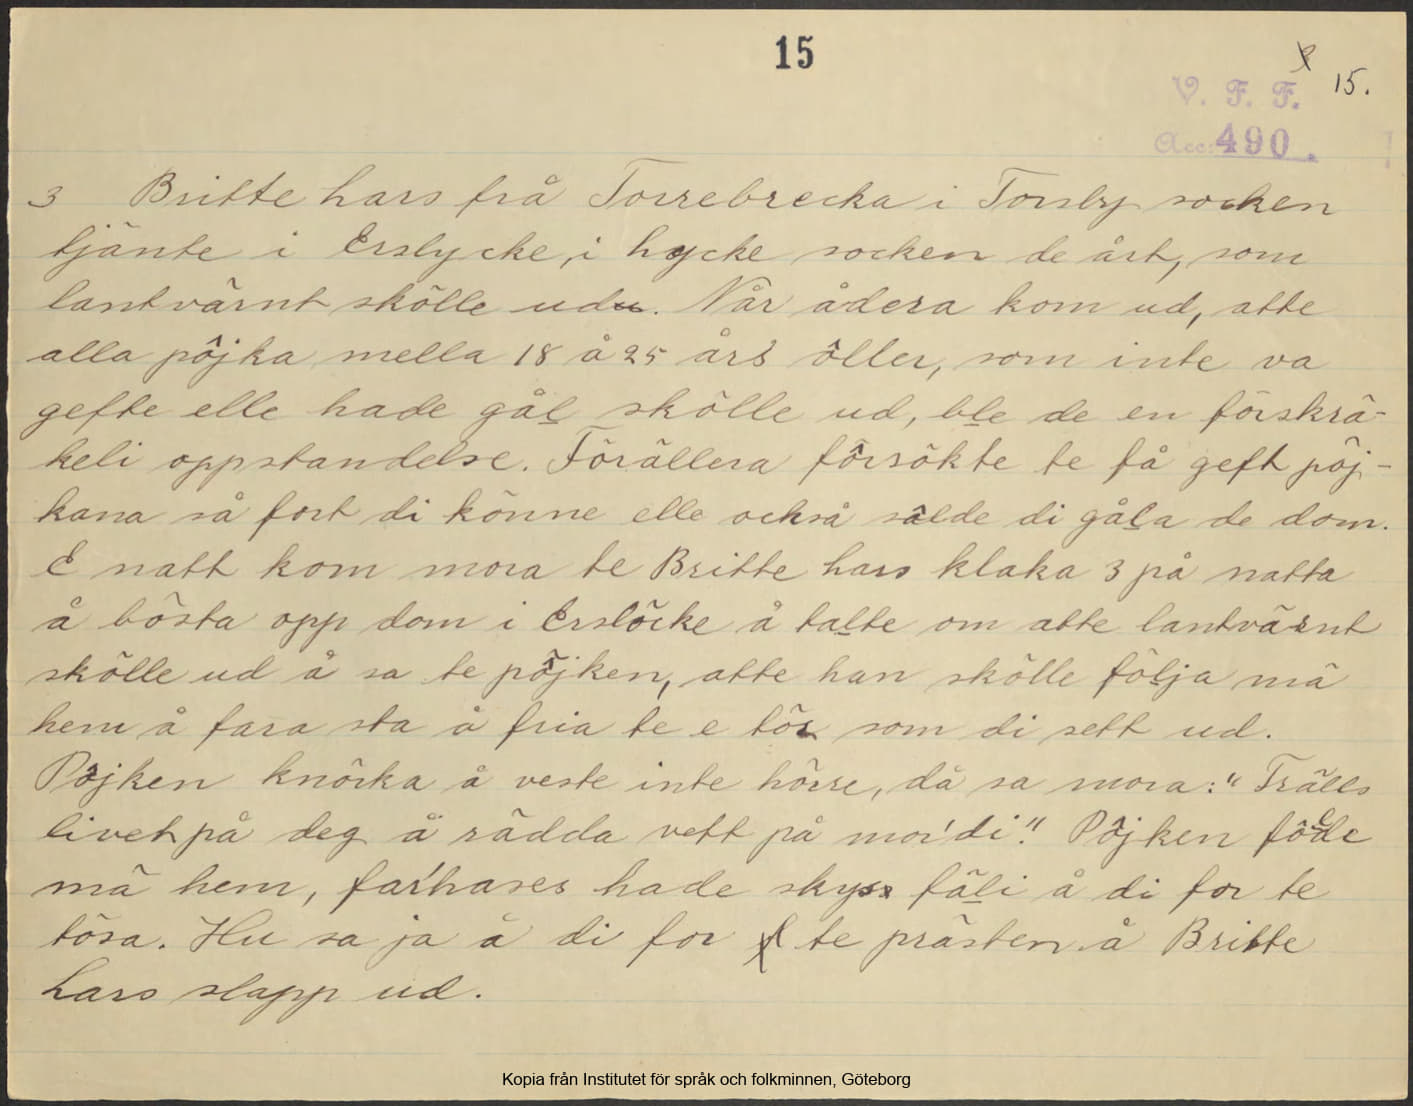 15
15.
V. F. F.
Acc: 490.
3 Britte Lars frå Torrebrecka i Torsby socken
tjänte i Erslycke, i Lycke socken de årt, som
lantvärnt skölle ud. När ådera kom ud, atte
alla pôjka mella 18 å 25 års ôller, som inte va
gefte elle hade gål skölle ud, ble de en förskrä-
keli oppstandelse. Förällera försökte te få geft pôj-
kana så fort di könne elle också sålde di gåla de dom.
E natt kom mora te Britte Lars klaka 3 på natta
å bösta opp dom i Erslöcke å talte om atte lantvärnt
skölle ud å sa te pôjken, atte han skölle följa mä
hem å fara sta å fria te e tös som di sett ud.
Pôjken knôrka å veste inte hörre, då sa mora: "Trälls
livet på deg å rädda vett på mor'di". Pôjken fôlde
mä hem, far'hases hade skyss fäli å di for te
tösa. Hu sa ja å di for te prästen å Britte
Lars slapp ud.
Kopia från Institutet för språk och folkminnen, Göteborg